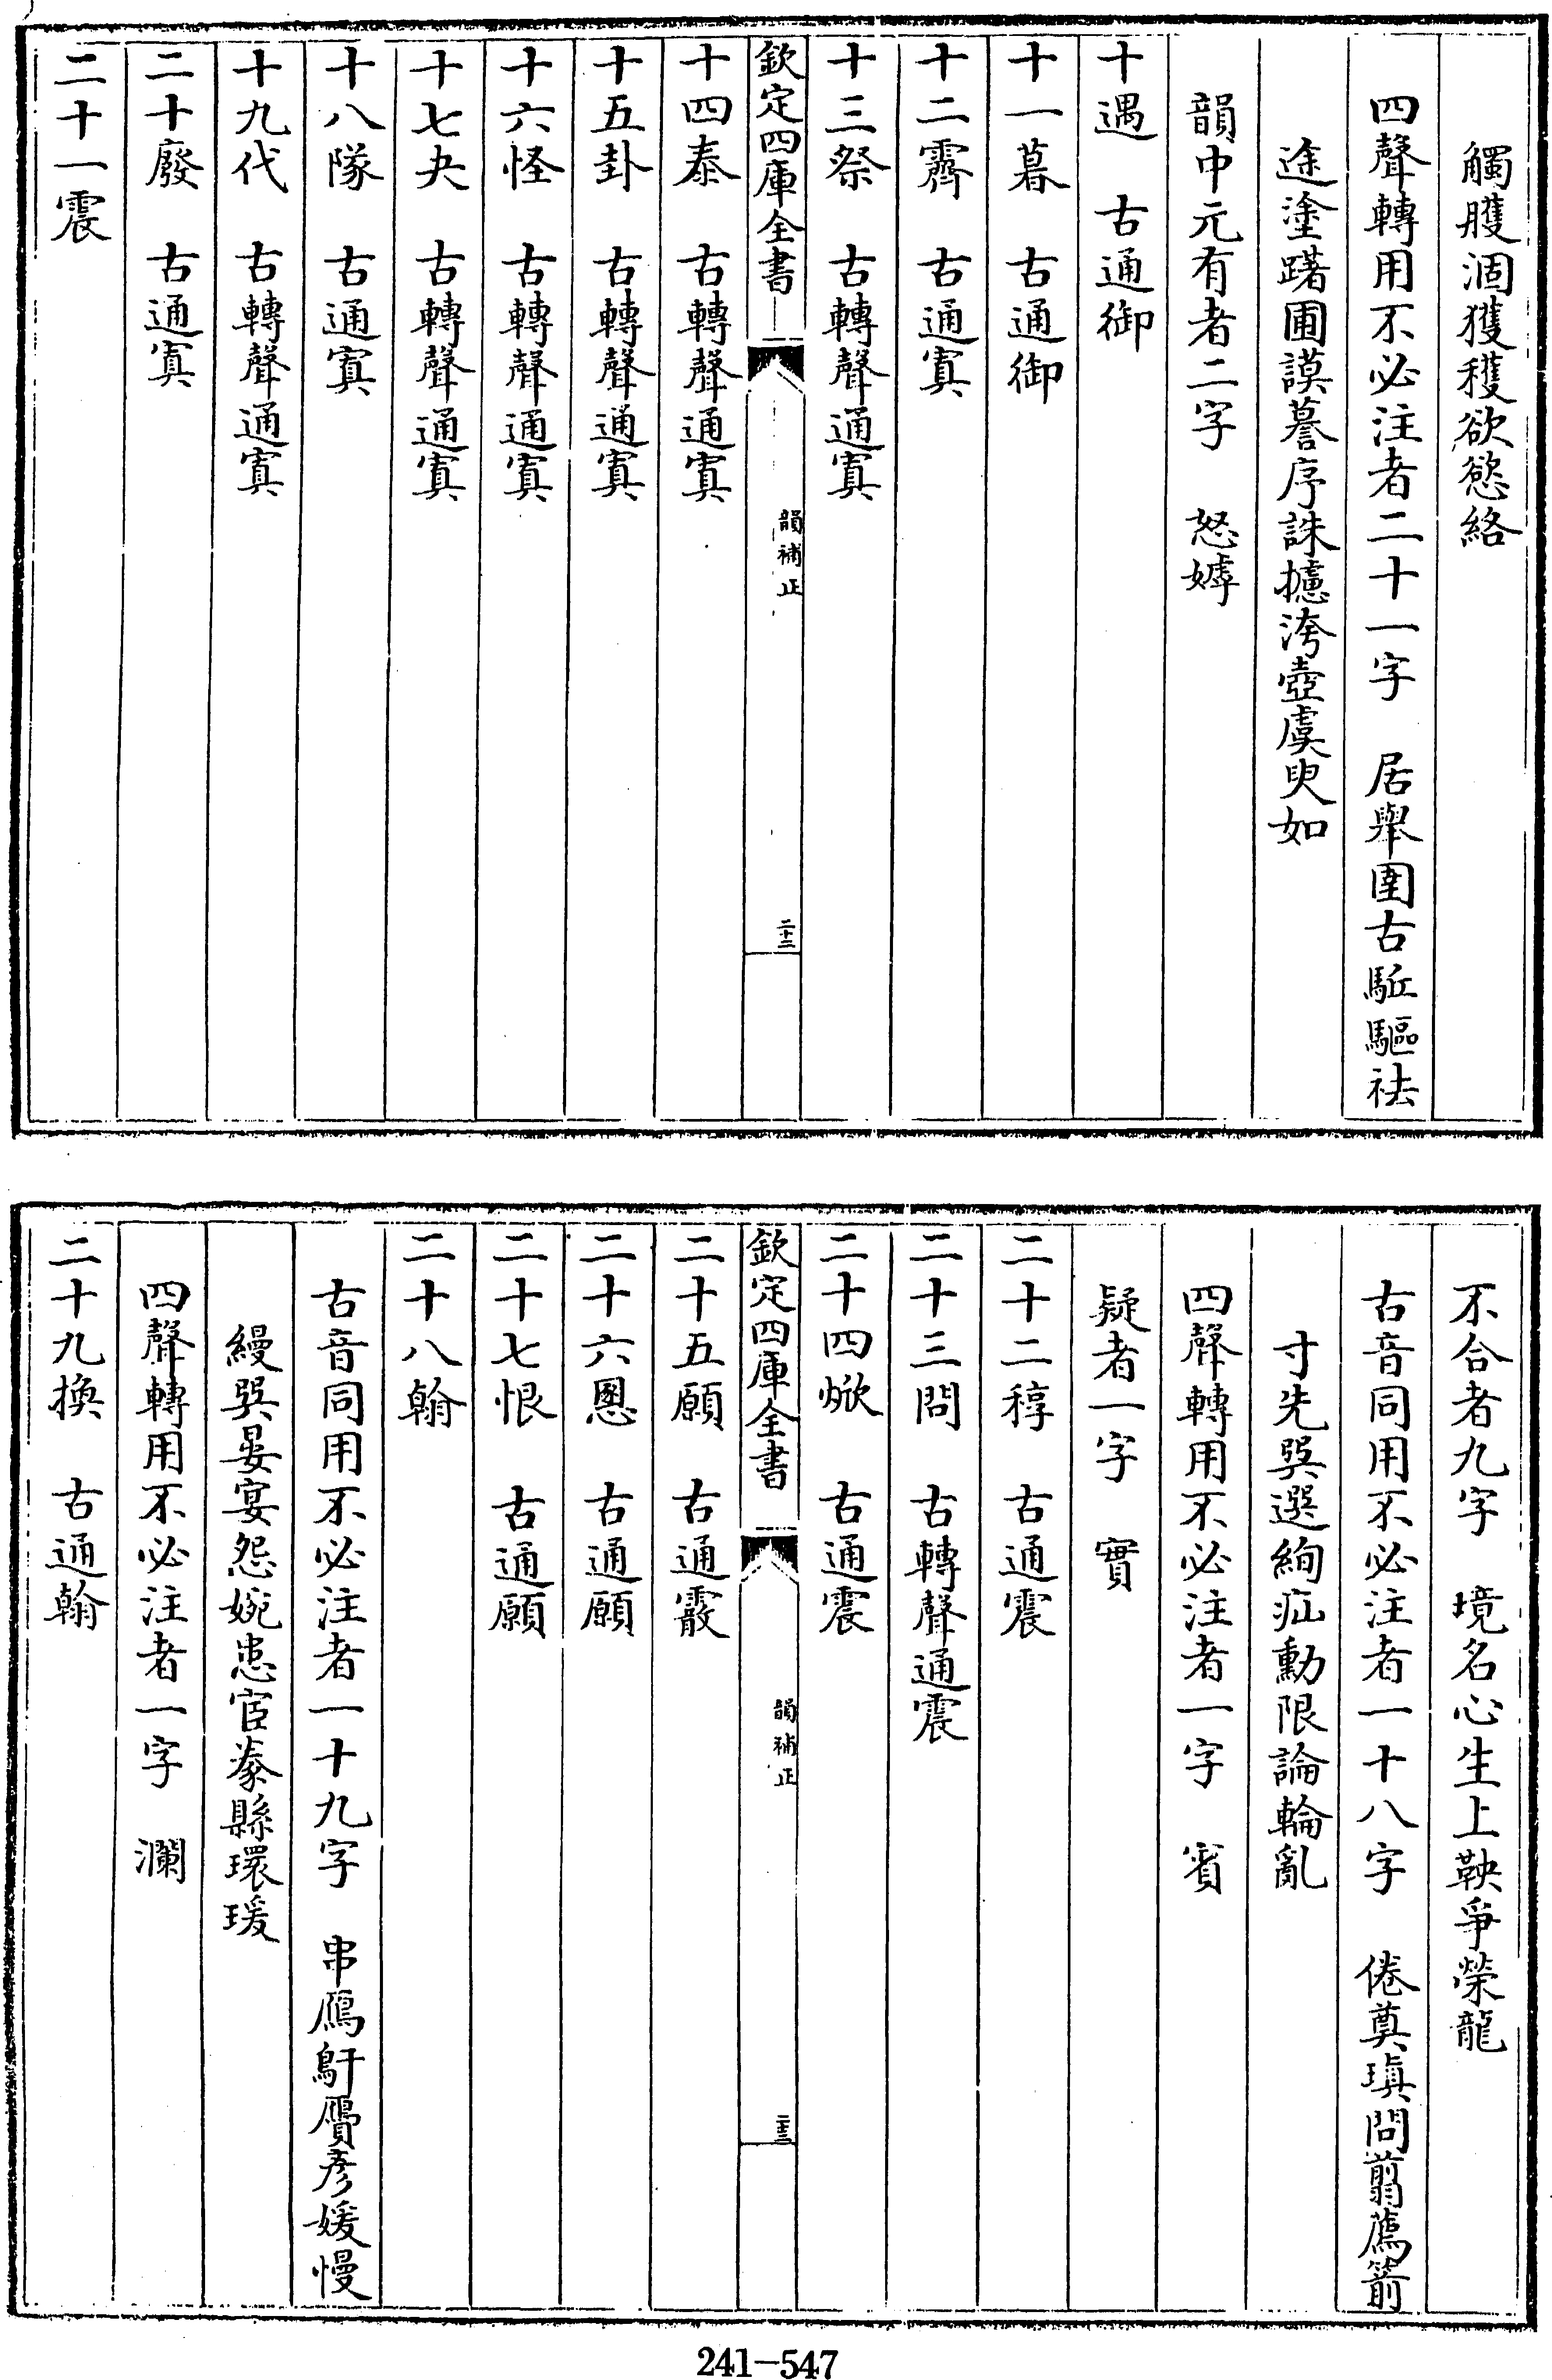 觸臒涸獲穫欲慾絡
四聲轉用不必注者二十一字　居舉圉古駈驅祛
途塗躇圃謨謩序誅攄洿壺虞臾如
韻中元有者二字　怒嫭
十遇　古通御
十一暮　古通御
十二霽　古通寘
十三祭　古轉聲通寘
欽定四庫全書
韻補正
二十二
十四泰　古轉聲通寘
十五卦　古轉聲通寘
十六怪　古轉聲通寘
十七夬　古轉聲通寘
十八隊　古通寘
十九代　古轉聲通寘
二十廢　古通寘
二十一震
不合者九字　境名心生上鞅爭榮龍
古音同用不必注者一十八字　倦奠瑱問翦薦箭
寸先巽選絢疝勳限論輪亂
四聲轉用不必注者一字　賓
疑者一字　實
二十二稕　古通震
二十三問　古轉聲通震
二十四焮　古通震
欽定四庫全書
韻補正
二十三
二十五願　古通霰
二十六慁　古通願
二十七恨　古通願
二十八翰
古音同用不必注者一十九字　串鴈鳱贗彥媛慢
縵巽晏宴怨婉患宦豢縣環瑗
四聲轉用不必注者一字　瀾
二十九換　古通翰
241-547